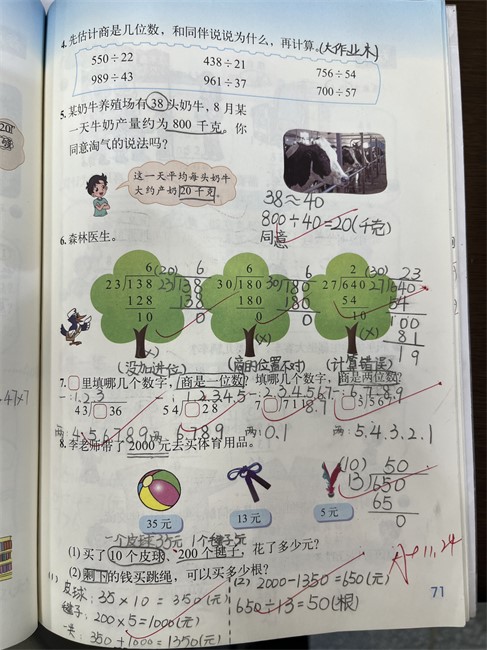 4.先估计商是几位数，和同伴说说为什么，再计算。(大作业本)
550÷22 438÷21 756÷54
989÷43 961÷37 700÷57
5.某奶牛养殖场有38头奶牛，8月某
一天牛奶产量约为800千克。你
同意淘气的说法吗？
这一天平均每头奶牛
大约产奶20千克。
38≈40
800÷40=20(千克)
同意
6.森林医生。
6 (20) 6 6 6 2 (30) 23
23 138 23 138 30 180 30 180 27 640 27 640
128 138 180 180 54 54
10 0 0 0 10 100
81
19
(×) (×) (×)
(没加进位) (商的位置不对) (计算错误)
7.□里填哪几个数字，商是一位数？填哪几个数字，商是两位数？
一:1.2.3 一:1.2.3.4.5
43 □36 54 □28
两:4.5.6.7.8.9 两:6.7.8.9 两:0.1 两:5.4.3.2.1
8.李老师带了2000元去买体育用品。
35元 13元 5元
(10) 50
13 650
65
0
一个皮球35元 1个毽子5元
(1)买了10个皮球、200个毽子，花了多少元？
(2)剩下的钱买跳绳，可以买多少根？
(1)
皮球：35×10=350(元)
毽子：200×5=1000(元)
一共：350+1000=1350(元)
(2) 2000-1350=650(元)
650÷13=50(根)
11.24
71